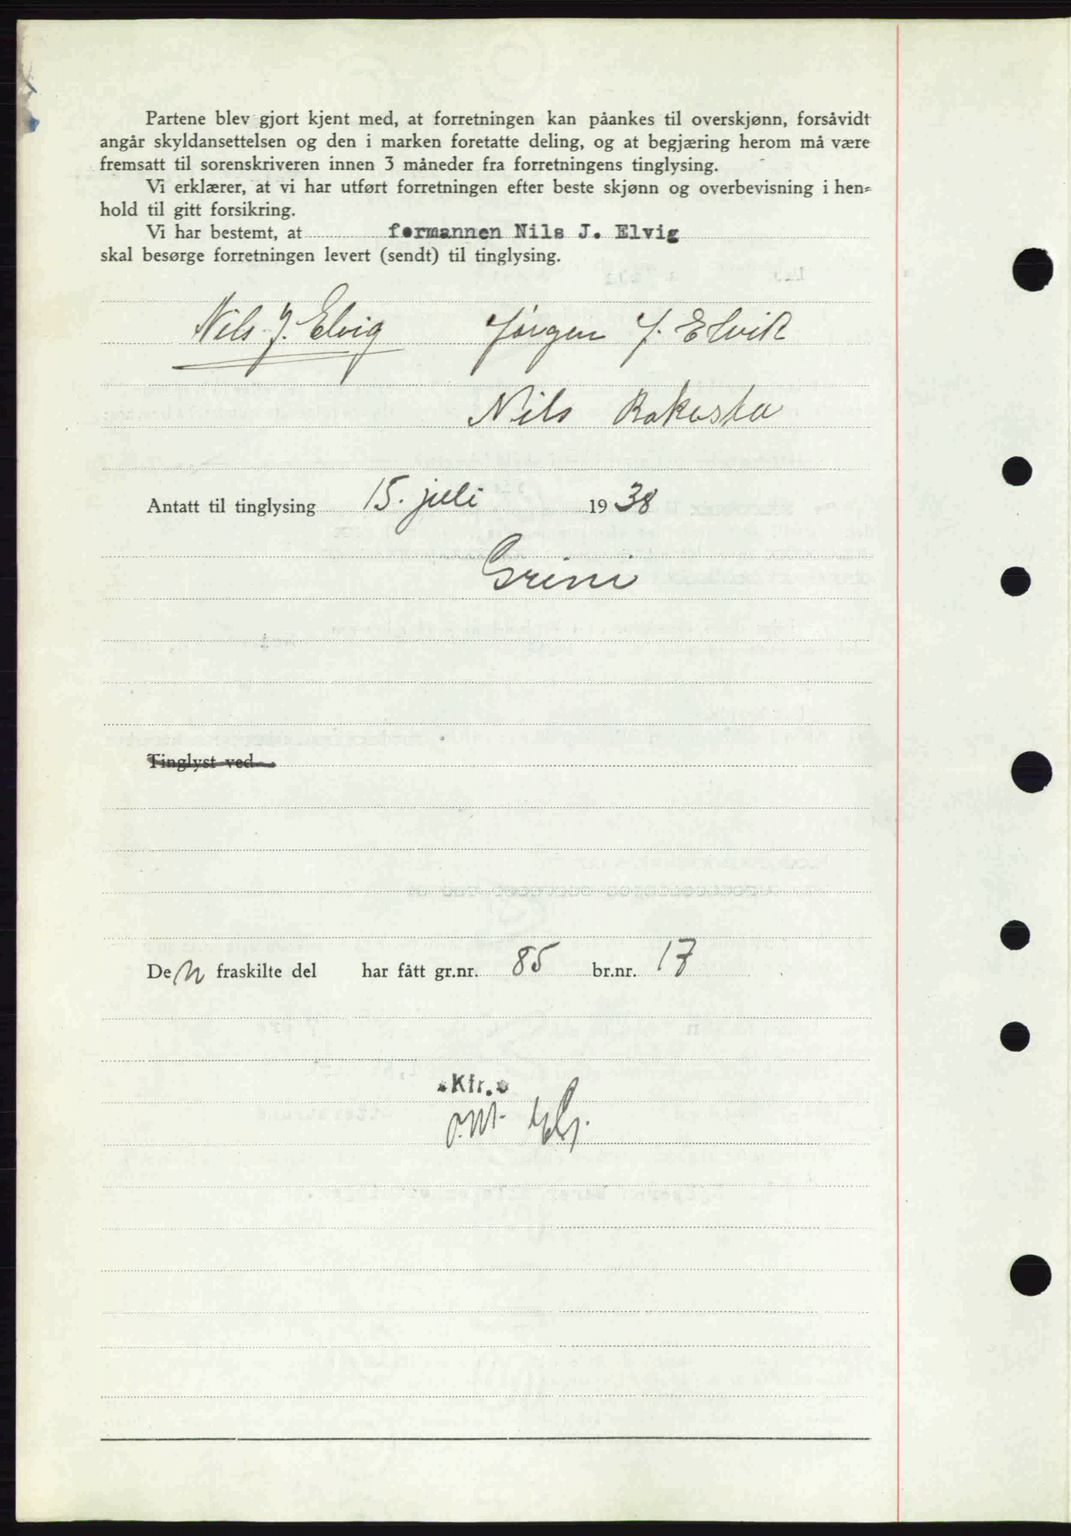 Partene blev gjort kjent med, at forretningen kan påankes til overskjønn, forsåvidt
angår skyldansettelsen og den i marken foretatte deling, og at begjæring herom må være
fremsatt til sorenskriveren innen 3 måneder fra forretningens tinglysing.
Vi erklærer, at vi har utført forretningen efter beste skjønn og overbevisning i hen-
hold til gitt forsikring.
Vi har bestemt, at formannen Nils J. Elvig
skal besørge forretningen levert (sendt) til tinglysing.
Nils J. Elvig Jørgen J. Elvik
Nils
Antatt til tinglysing 15. juli 1938
Grini
Tinglyst ved
Den fraskilte del har fått gr.nr. 85 br.nr. 17
Kfr.